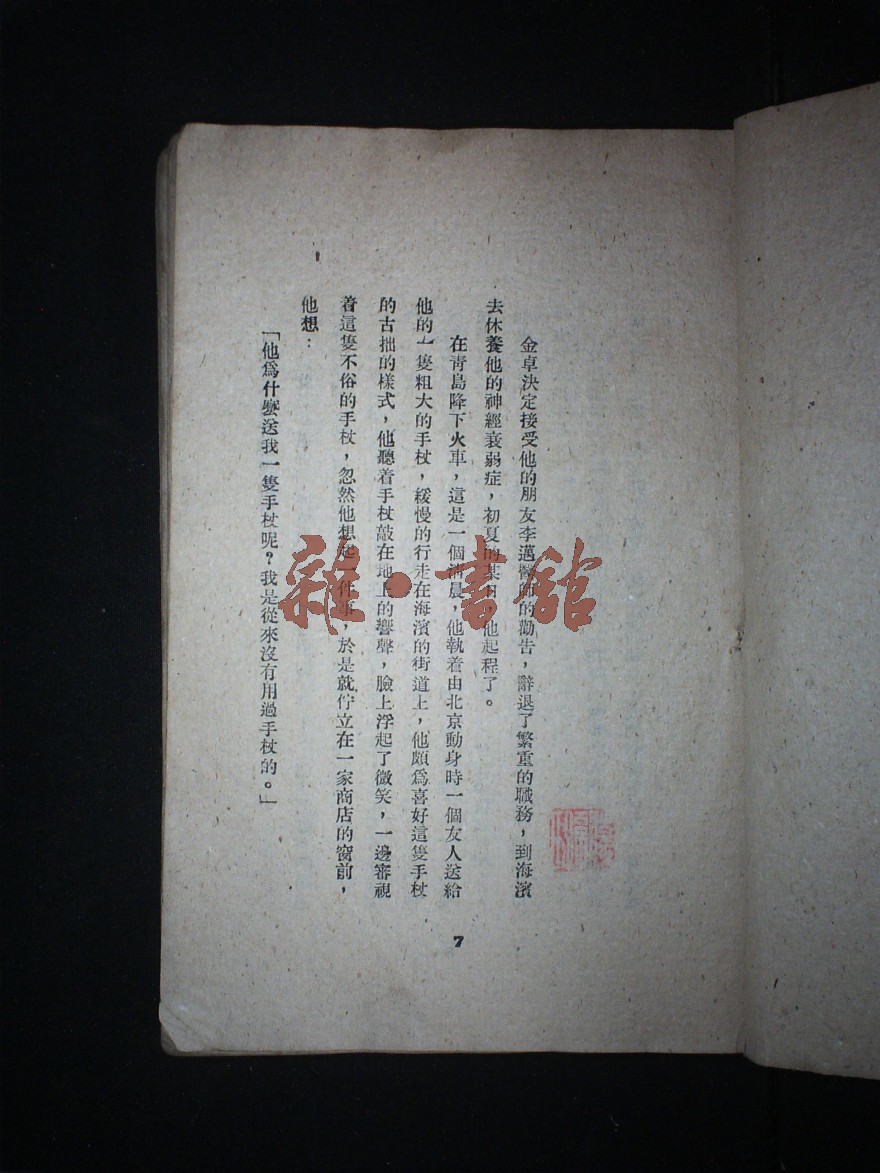 金卓決定接受他的朋友李邁醫師的勸告，辭退了繁重的職務，到海濱
去休養他的神經衰弱症，初夏的某日，他起程了。
在靑島降下火車，這是一個淸晨，他執着由北京動身時一個友人送給
他的一隻粗大的手杖，緩慢的行走在海濱的街道上，他頗爲喜好這隻手杖
的古拙的樣式，他聽着手杖敲在地上的響聲，臉上浮起了微笑，一邊審視
着這隻不俗的手杖，忽然他想起一件事，於是就佇立在一家商店的窗前，
他想：
「他爲什麼送我一隻手杖呢？我是從來沒有用過手杖的。」
7
雜·書館